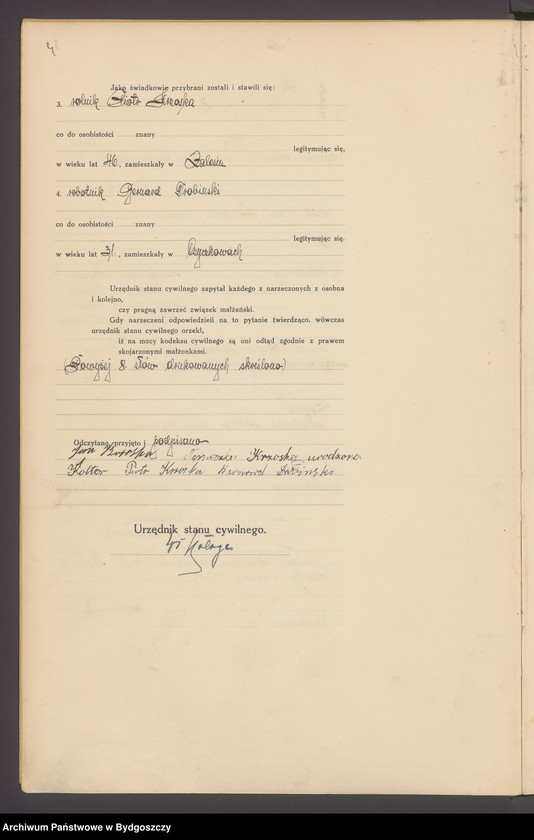 4
Jako świadkowie przybrani zostali i stawili się:
3. rolnik Piotr Krzoska
co do osobistości znany
legitymując się,
w wieku lat 46, zamieszkały w Zalesiu
4. robotnik Bernard Drobinski
co do osobistości znany
legitymując się.
w wieku lat 31, zamieszkały w
Urzędnik stanu cywilnego zapytał każdego z narzeczonych z osobna
i kolejno,
czy pragną zawrzeć związek małżeński.
Gdy narzeczeni odpowiedzieli na to pytanie twierdząco, wówczas
urzędnik stanu cywilnego orzekł,
iż na mocy kodeksu cywilnego są oni odtąd zgodnie z prawem
skojarzonymi małżonkami.
(Powyżej 8 słów drukowanych skreślono)
Odczytano, przyjęto i podpisano
Jan Krzoska Krzoska urodzona
Koltor Piotr Krzoska Bernard
Urzędnik stanu cywilnego.
Archiwum Państwowe w Bydgoszczy